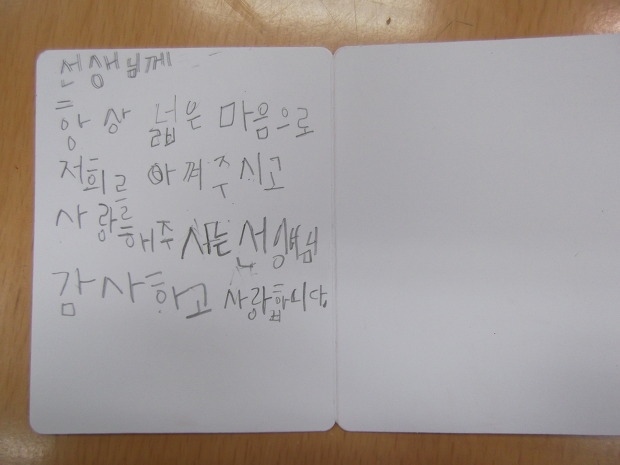 선생님께
항상 넓은 마음으로
저희르 아껴주시고
사랑를해주시는선생님
감사하고 사랑합니다